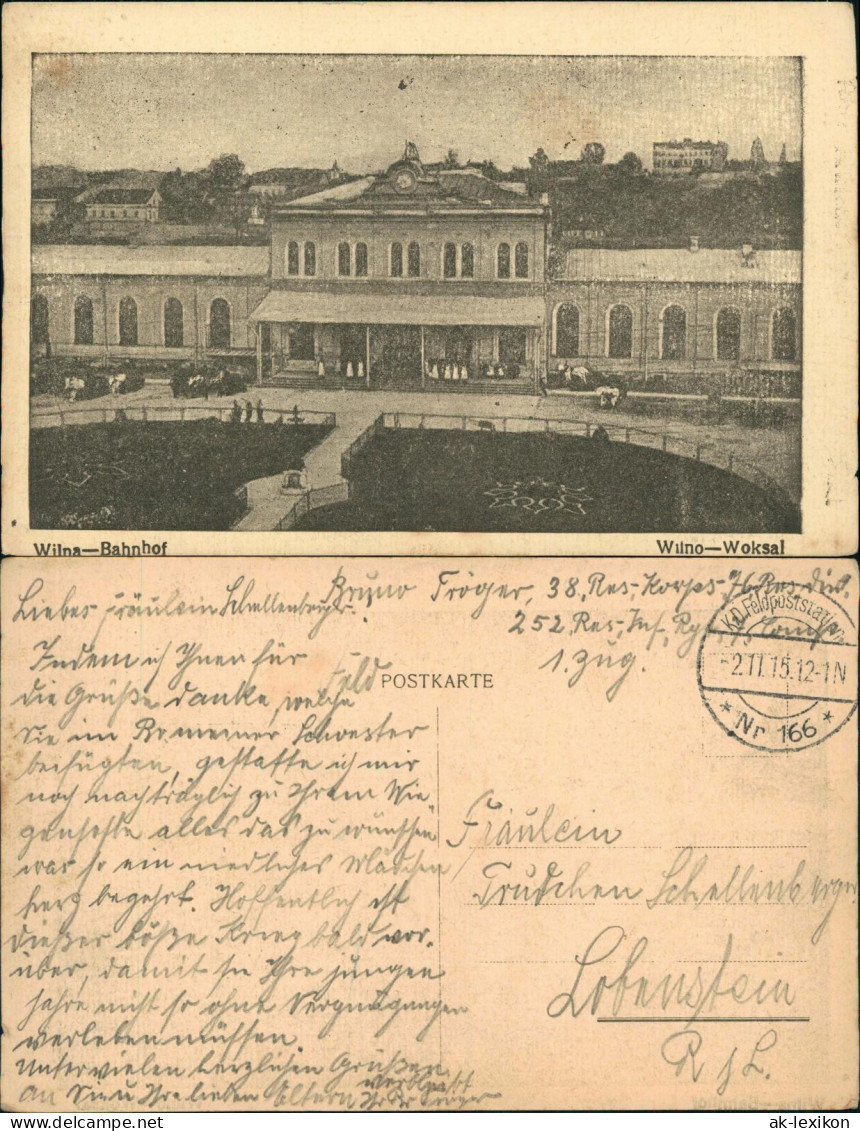 Wilna—Bahnhof
Wilno—Woksal
Bruno Tröger, 38. Res. Korps 76 Res. Div.
252. Res. Inf. Rg
1. Zug.
K.D. Feldpoststation
-2.11.15.12-1N
* Nr 166 *
Feld
POSTKARTE
Liebes Fräulein Schellenberger.
Indem ich Ihnen für
die Grüße danke, welche
Sie im Br. meiner Schwester
beifügten, gestatte ich mir
noch nachträglich zu Ihrem Wie
genfeste alles das zu wünschen
was so ein niedliches Mädchen
herz begehrt. Hoffentlich ist
dießer böße Krieg bald vor-
über, damit sie Ihre jungen
Jahre nicht so ohne Vergnügungen
verleben müssen.
Unter vielen herzlichen Grüßen
an Sie u Ihre lieben Eltern
verbleibt
Ihr Br Tröger
Fräulein
Trudchen Schellenberger
Lobenstein
R j L.
ak-lexikon